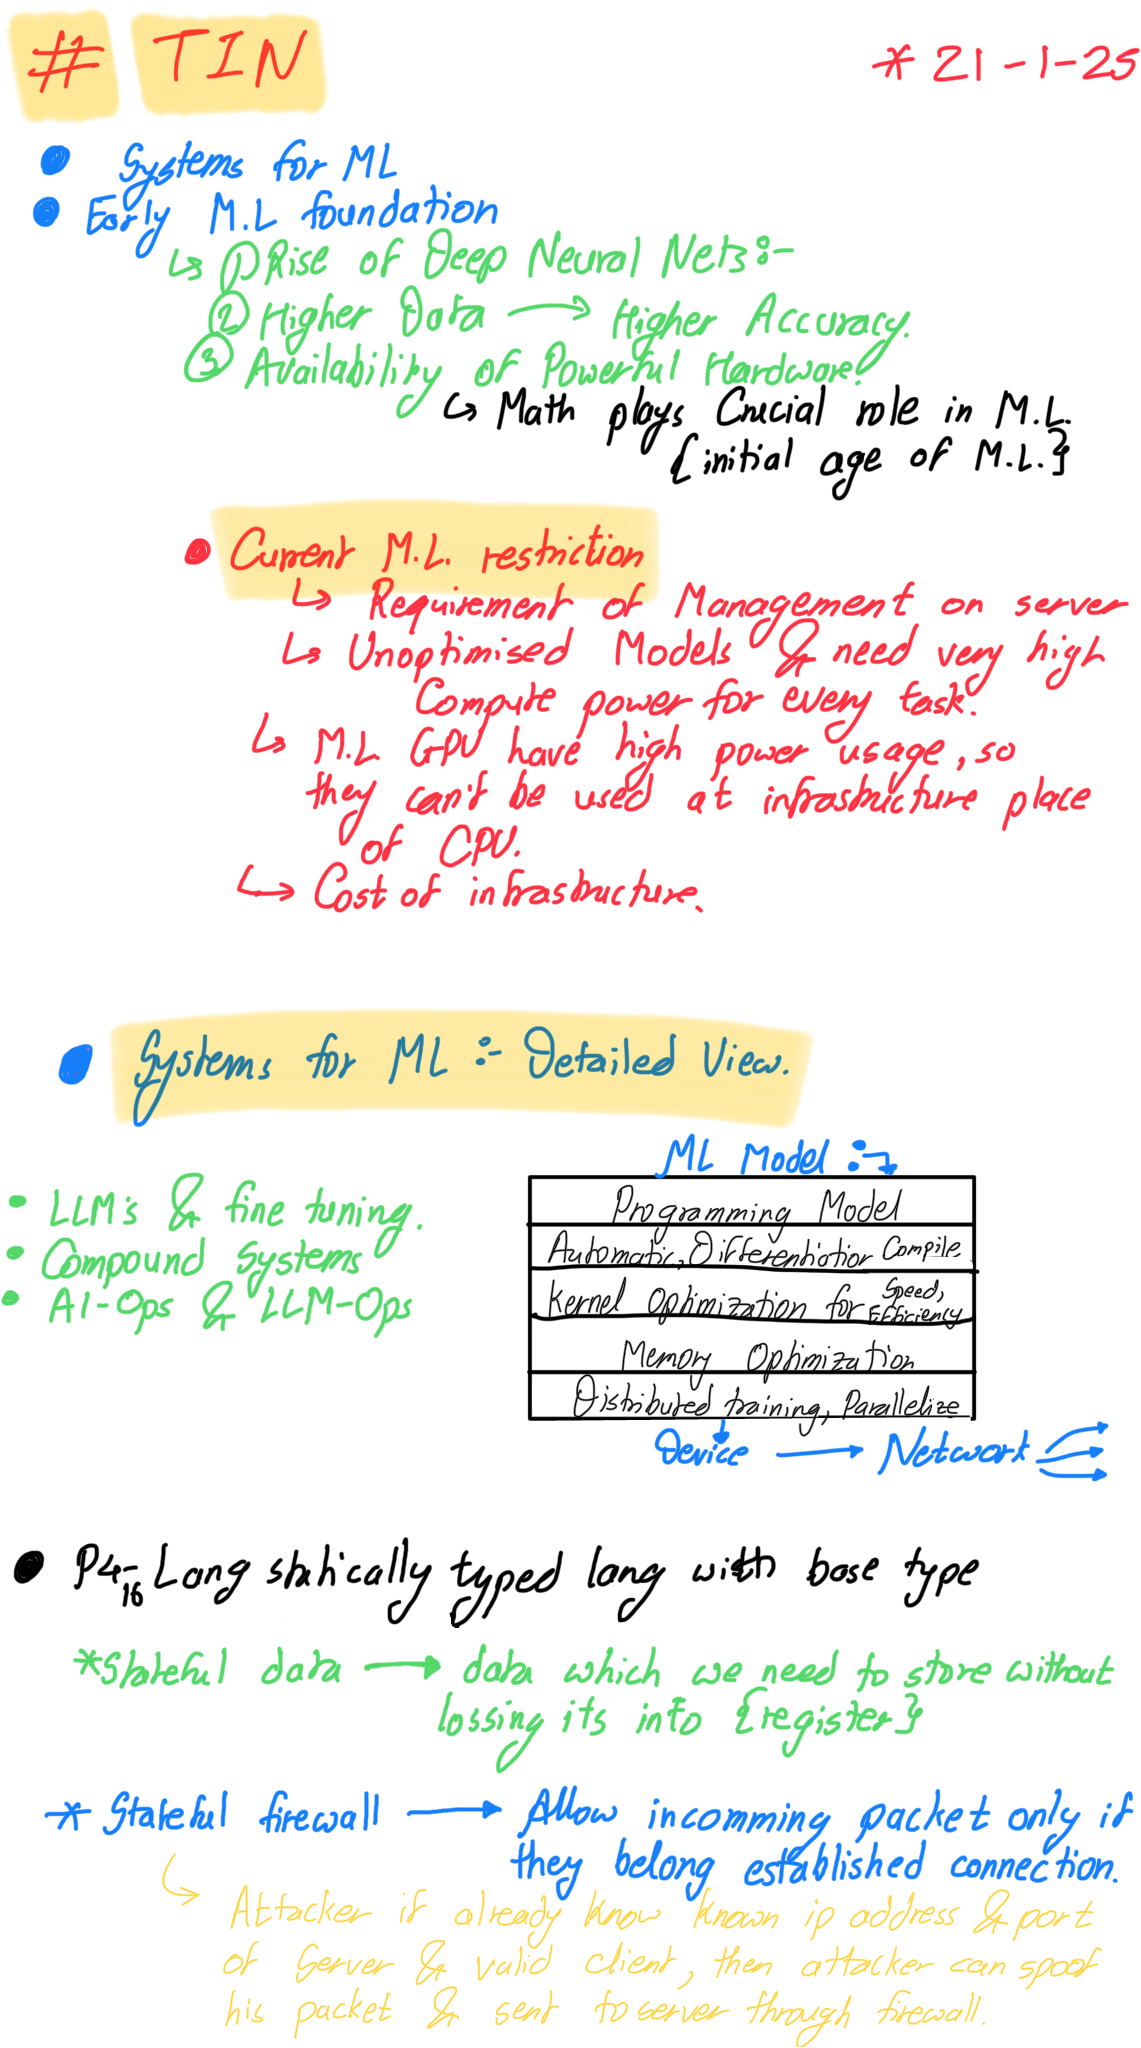 # TIN
* 21-1-25
Systems for ML
Early M.L foundation
↳ 1) Rise of Deep Neural Nets:-
② Higher Data → Higher Accuracy.
③ Availability of Powerful Hardware.
↳ Math plays Crucial role in M.L.
{initial age of M.L.}
Current M.L. restriction
↳ Requirement of Management on server
↳ Unoptimised Models & need very high
Compute power for every task.
↳ M.L GPU have high power usage, so
they can't be used at infrastructure place
of CPU.
↳ Cost of infrastructure.
Systems for ML :- Detailed View.
ML Model :-
• LLM's & fine tuning.
• Compound Systems
• AI-Ops & LLM-Ops
Programming Model
Automatic, Differentiation Compile.
Kernel Optimization for Speed, Efficiency
Memory Optimization
Distributed training, Parallelize
Device → Network
P4-16 Lang statically typed lang with base type
*Stateful data → data which we need to store without
lossing its info {register}
* Stateful firewall → Allow incomming packet only if
they belong established connection.
↳ Attacker if already know known ip address & port
of server & valid client, then attacker can spoof
his packet & sent to server through firewall.